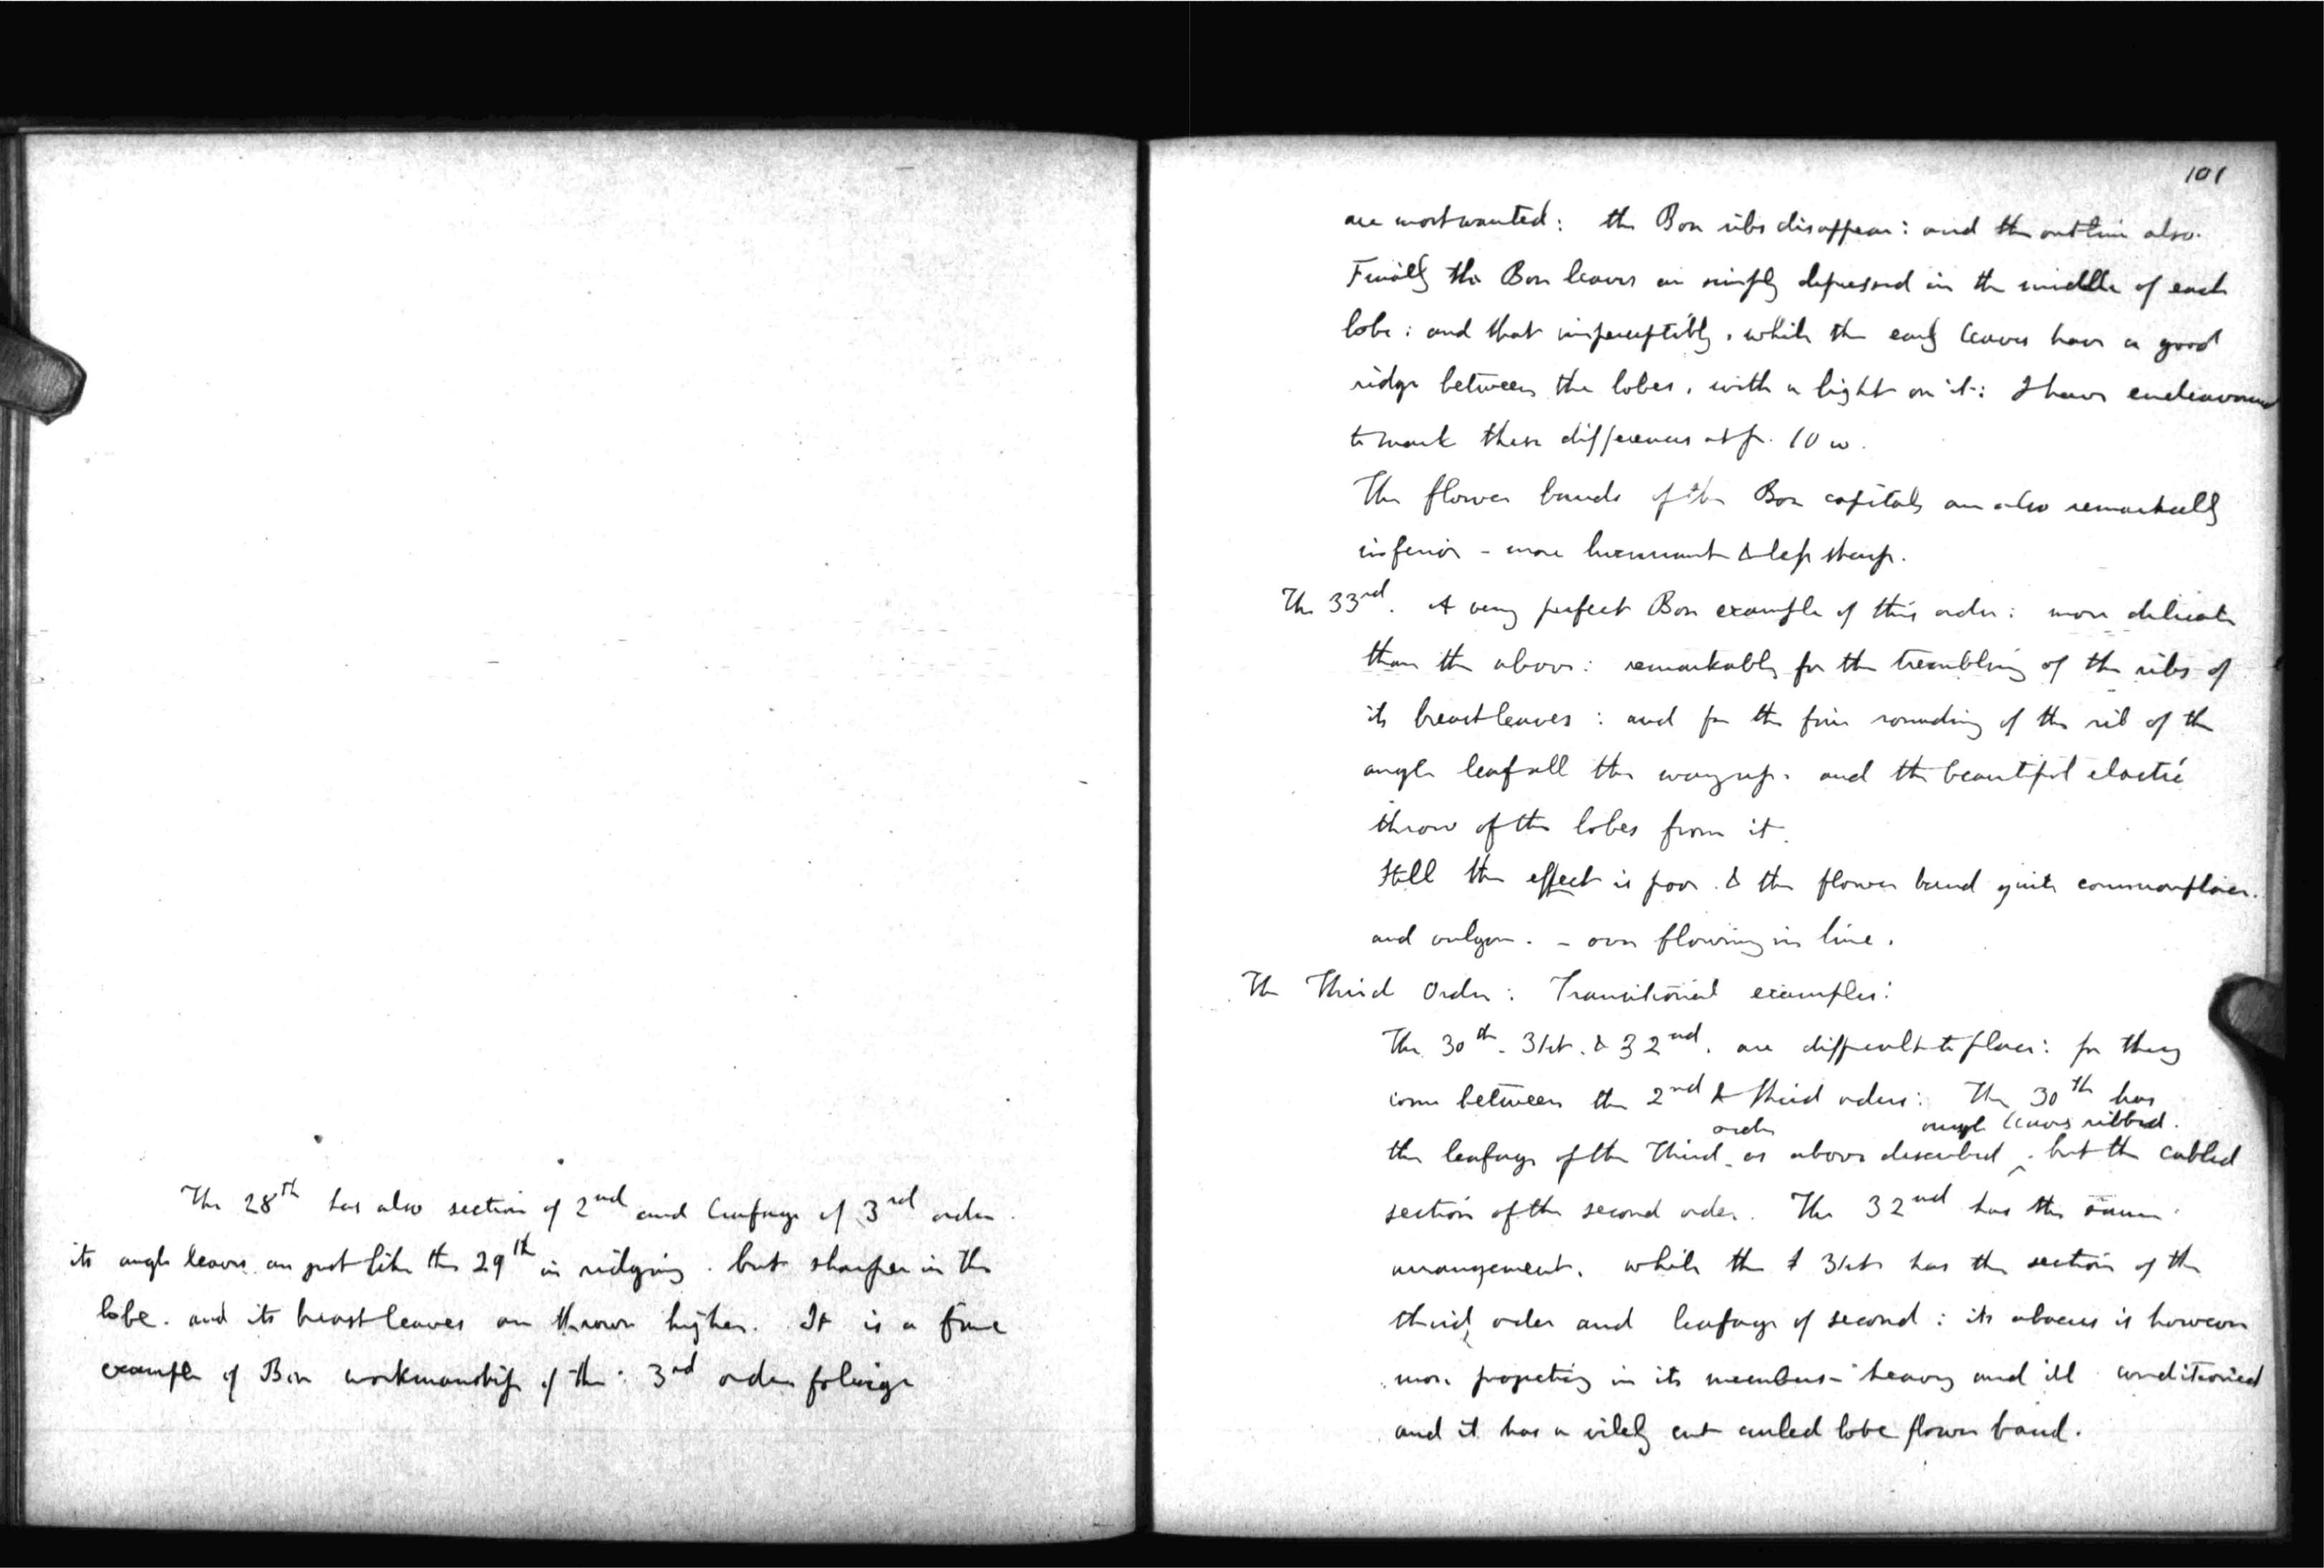 The 28th has also section of 2nd and leafage of 3rd order.
its angle leaves are just like the 29th in ridging. but sharper in the
lobe. and its breast leaves are thrown higher. It is a fine
example of Bon workmanship of the 3rd order foliage
101
are most wanted: the Bon ribs disappear: and the outline also.
Finally the Bon leaves are simply depressed in the middle of each
lobe: and that imperceptibly, while the early leaves have a good
ridge between the lobes, with a light on it: I have endeavoured
to mark these differences at p. 10 w.
The flower bands of the Bon capitals are also remarkably
inferior - more luxuriant & less sharp.
The 33rd. A very perfect Bon example of this order: more delicate
than the above: remarkable for the trembling of the ribs of
its breastleaves: and for the fine rounding of the rib of the
angle leaf all the way up. and the beautiful elastic
throw of the lobes from it.
Still the effect is poor. & the flower band quite commonplace.
and vulgar. - over flowing in line.
The Third Order: Transitional examples:
The 30th. 31st. & 32nd. are difficult to place: for they
come between the 2nd & third orders: The 30th has
order angle leaves ribbed.
the leafage of the Third as above described, but the cabled
section of the second order. The 32nd has the same
arrangement. while the 31st has the section of the
third order and leafage of second: its abacus is however
more projecting in its members - heavy and ill conditioned
and it has a vilely cut curled lobe flower band.